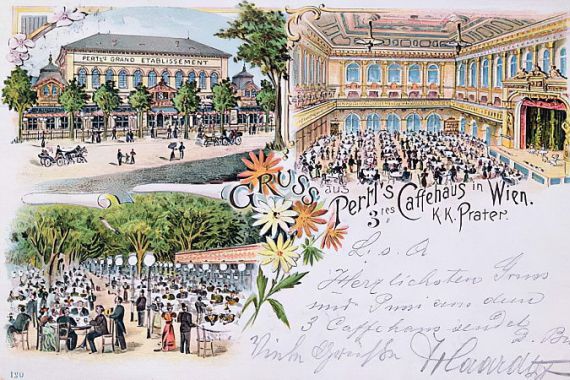 PERTL'S GRAND ETABLISSEMENT
GRUSS aus Pertl's
3tes Caffehaus in Wien.
K.K. Prater.
L. s. A
Herzlichsten Gruss
und aus dem
3 Caffehaus sendet
Viele Grüße
120